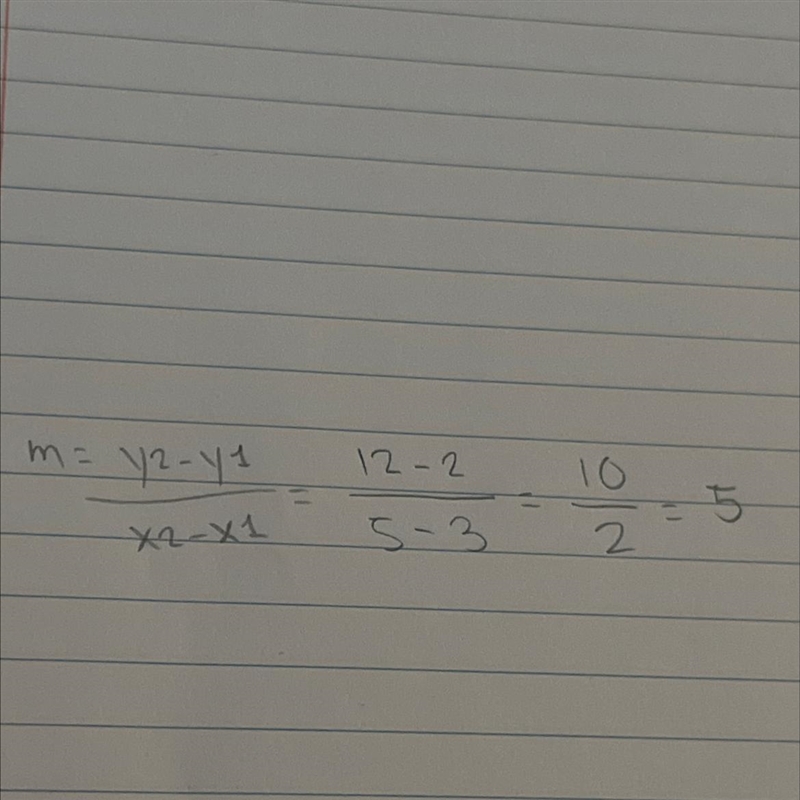 m = y2-y1 / x2-x1 = 12-2 / 5-3 = 10 / 2 = 5